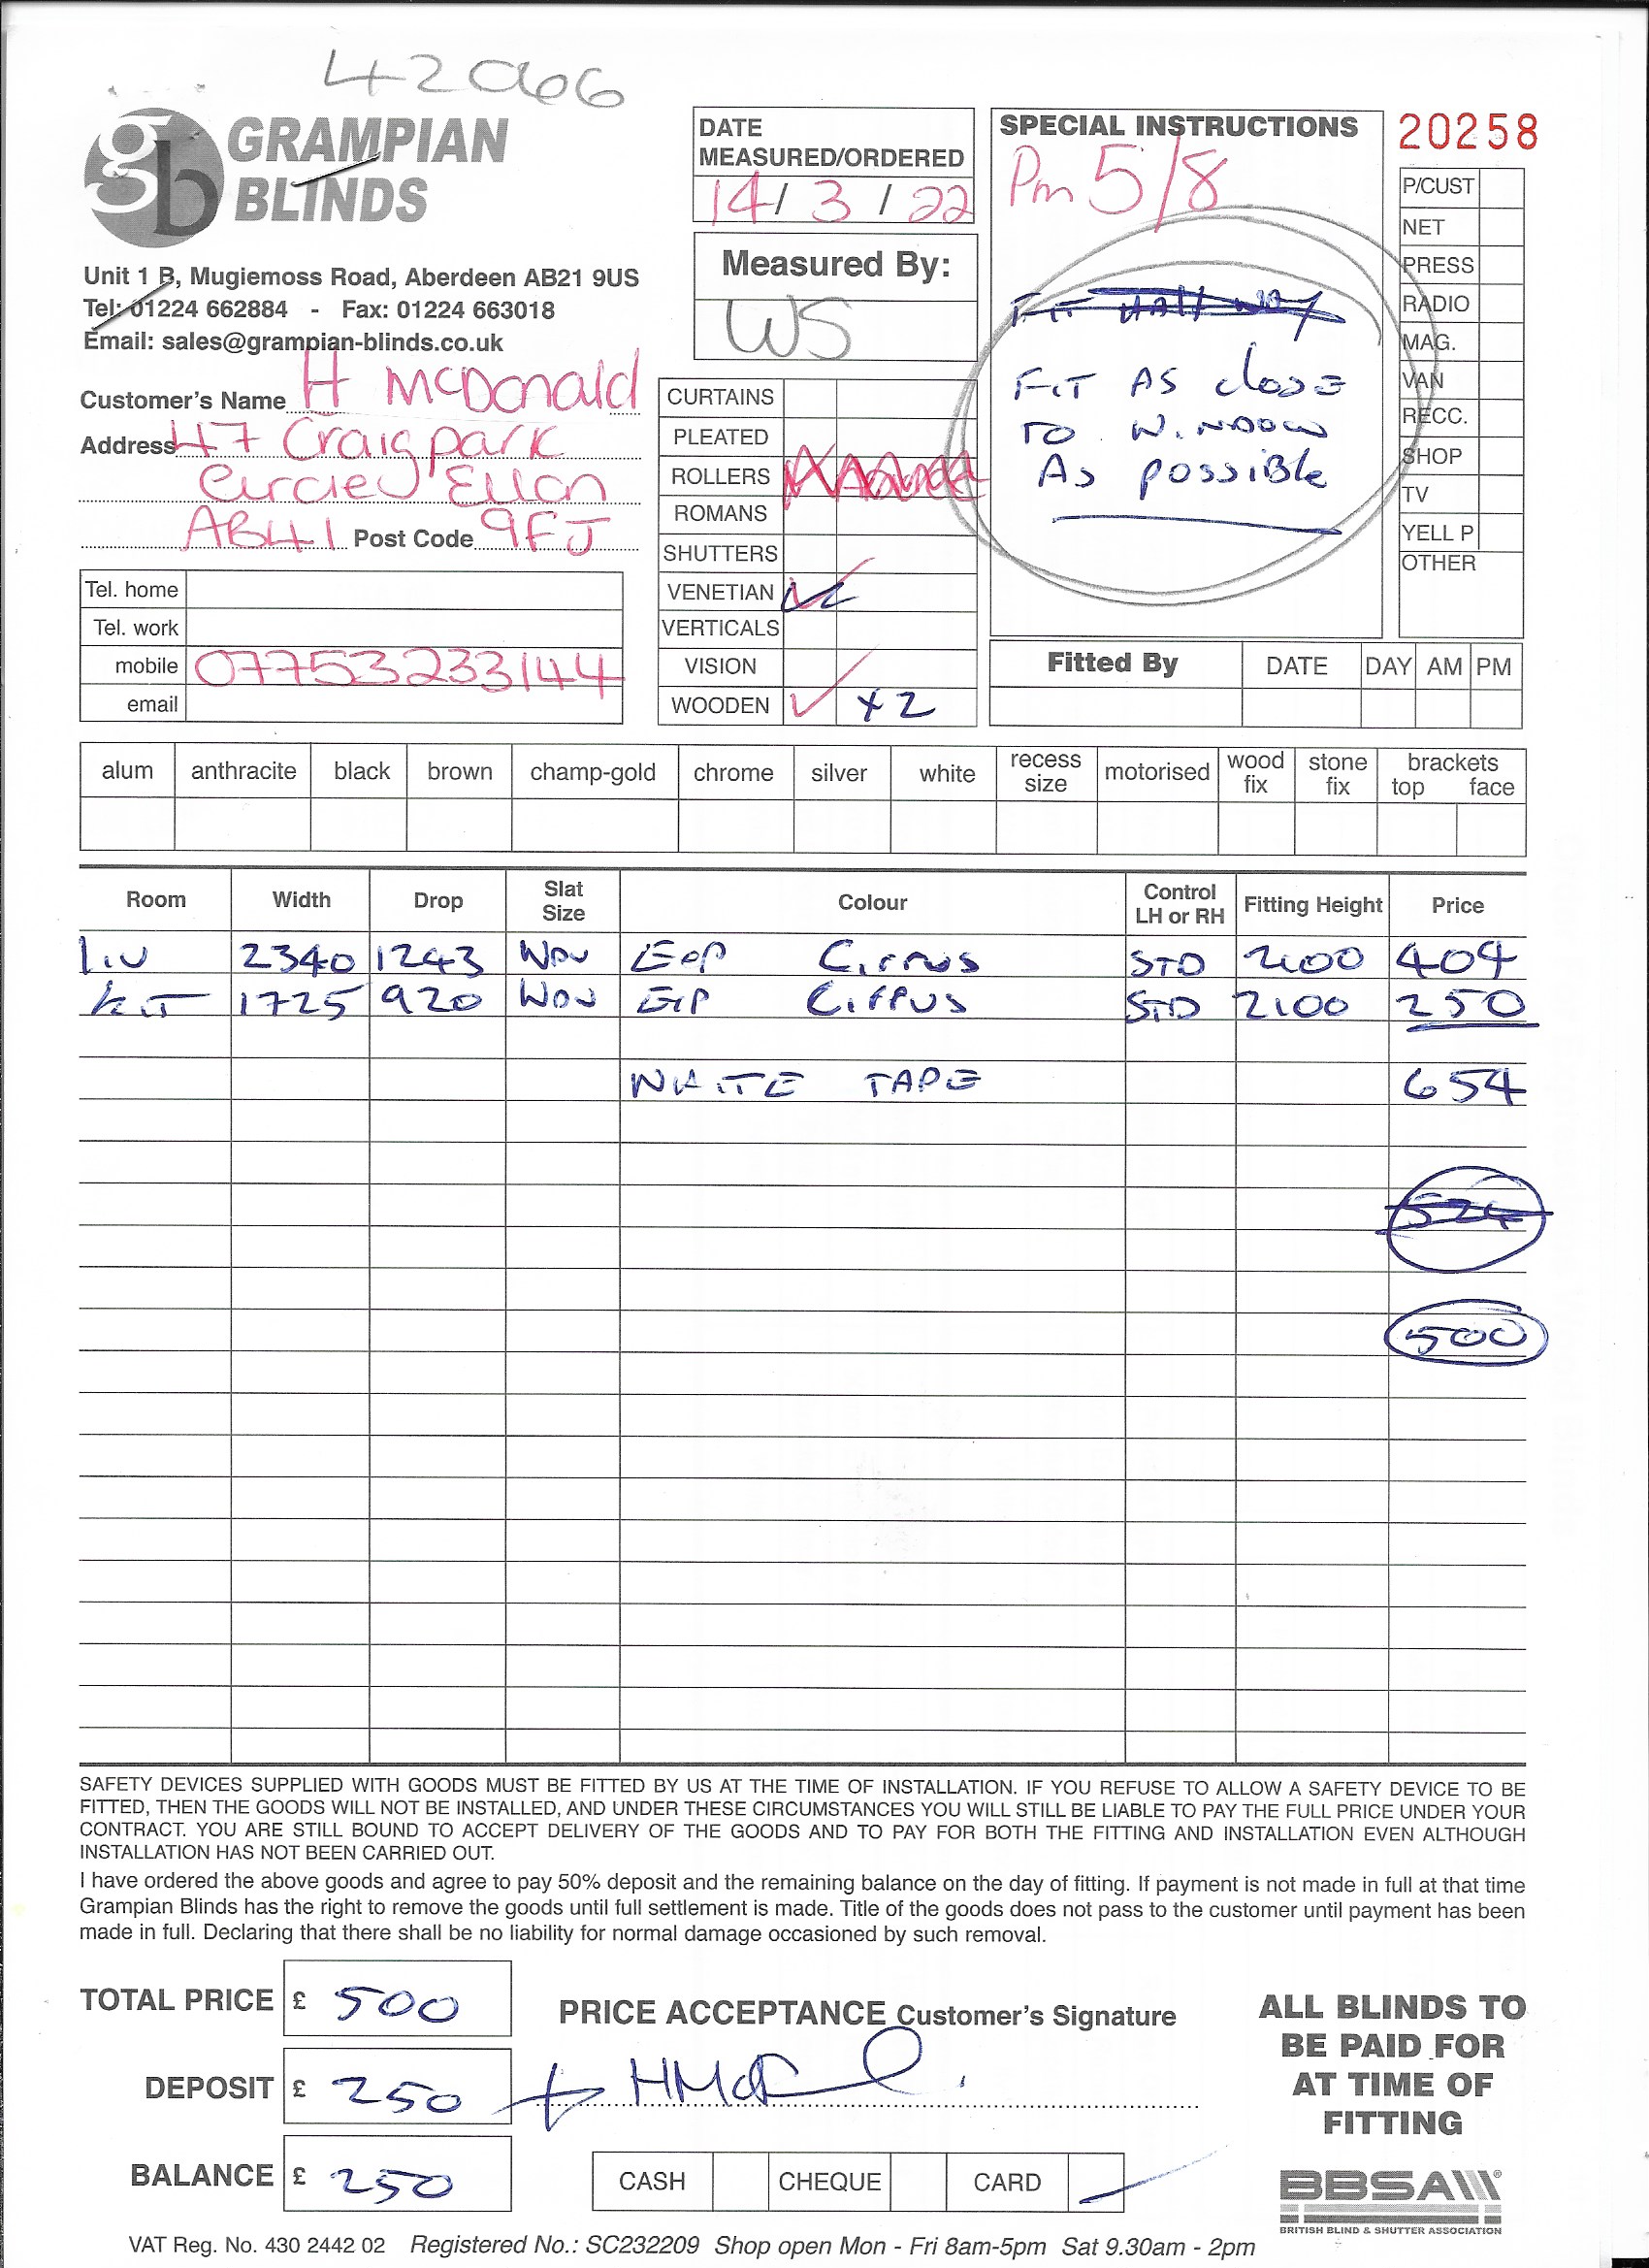 42066
GRAMPIAN
BLINDS
Unit 1 B, Mugiemoss Road, Aberdeen AB21 9US
Tel: 01224 662884 - Fax: 01224 663018
Email: sales@grampian-blinds.co.uk
Customer's Name H McDonald
Address 47 Craigpark
Circle Ellon
AB41 Post Code 9FJ
Tel. home
Tel. work
mobile 07753233144
email
DATE
MEASURED/ORDERED
14/ 3 / 22
Measured By:
WS
CURTAINS
PLEATED
ROLLERS
ROMANS
SHUTTERS
VENETIAN
VERTICALS
VISION
WOODEN x2
SPECIAL INSTRUCTIONS
Pm 5/8
FIT HALF WAY
FIT AS close
TO WINDOW
As possible
20258
P/CUST
NET
PRESS
RADIO
MAG.
VAN
RECC.
SHOP
TV
YELL P
OTHER
Fitted By DATE DAY AM PM
alum anthracite black brown champ-gold chrome silver white recess size motorised wood fix stone fix brackets top face
Room Width Drop Slat Size Colour Control LH or RH Fitting Height Price
Liv 2340 1243 Cirrus STD 2100 404
KIT 1725 920 Cirrus STD 2100 250
WHITE TAPE 654
524
500
SAFETY DEVICES SUPPLIED WITH GOODS MUST BE FITTED BY US AT THE TIME OF INSTALLATION. IF YOU REFUSE TO ALLOW A SAFETY DEVICE TO BE
FITTED, THEN THE GOODS WILL NOT BE INSTALLED, AND UNDER THESE CIRCUMSTANCES YOU WILL STILL BE LIABLE TO PAY THE FULL PRICE UNDER YOUR
CONTRACT. YOU ARE STILL BOUND TO ACCEPT DELIVERY OF THE GOODS AND TO PAY FOR BOTH THE FITTING AND INSTALLATION EVEN ALTHOUGH
INSTALLATION HAS NOT BEEN CARRIED OUT.
I have ordered the above goods and agree to pay 50% deposit and the remaining balance on the day of fitting. If payment is not made in full at that time
Grampian Blinds has the right to remove the goods until full settlement is made. Title of the goods does not pass to the customer until payment has been
made in full. Declaring that there shall be no liability for normal damage occasioned by such removal.
TOTAL PRICE £ 500
DEPOSIT £ 250
BALANCE £ 250
PRICE ACCEPTANCE Customer's Signature
CASH CHEQUE CARD
ALL BLINDS TO
BE PAID FOR
AT TIME OF
FITTING
BBSA
BRITISH BLIND & SHUTTER ASSOCIATION
VAT Reg. No. 430 2442 02 Registered No.: SC232209 Shop open Mon - Fri 8am-5pm Sat 9.30am - 2pm